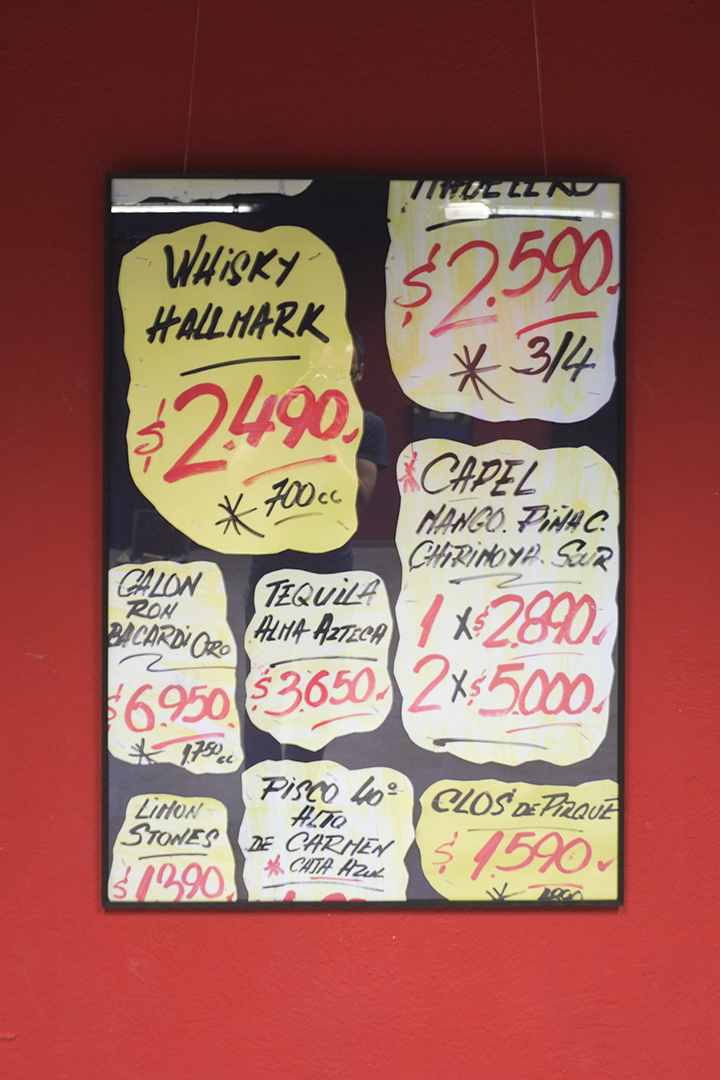 WHISKY
HALLMARK
$2.490
* 700cc
$2.590
* 3/4
* CAPEL
MANGO. PIÑA C.
CHIRIMOYA. SOUR
1 x $2.890
2 x $5.000
GALON
RON
BACARDI ORO
$6.950
* 1.750 cc
TEQUILA
ALMA AZTECA
$3.650
LIMON
STONES
$1390
PISCO 40º
ALTO
DE CARMEN
* CATA AZUL
CLOS DE PIRQUE
$1.590